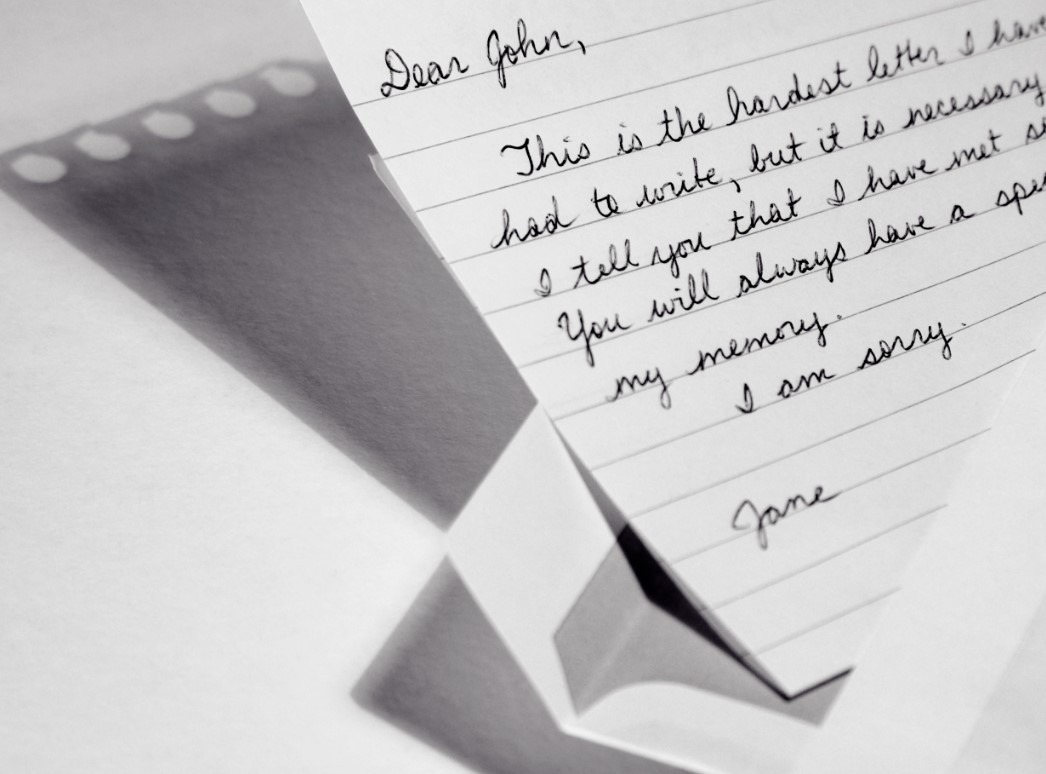 Dear John,
This is the hardest letter I have
had to write, but it is necessary
I tell you that I have met
You will always have a
my memory.
I am sorry.
Jane